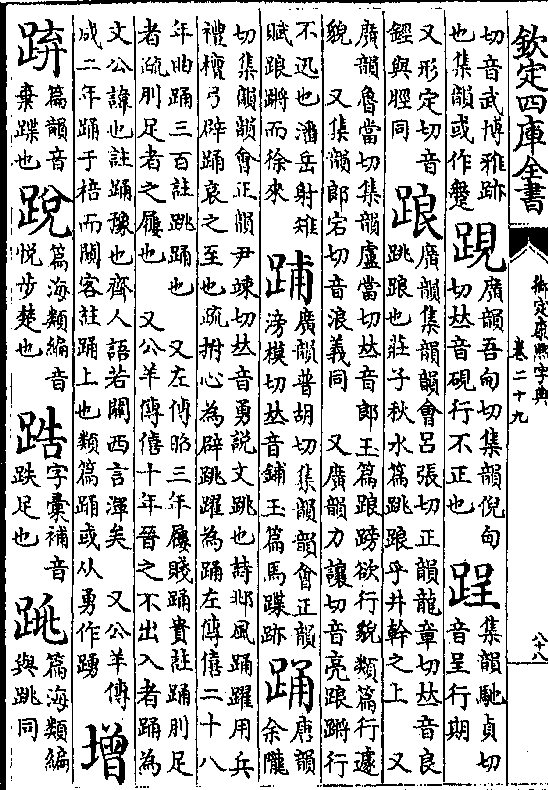 欽定四庫全書
御定康熙字典
卷二十九
八十八
切音武博雅跡
也集韻或作
𨁍
廣韻吾甸切集韻倪甸
切𠀤音硯行不正也
𨁎
集韻馳貞切
音呈行期
又形定切音
鋞與脛同
踉
廣韻集韻韻會呂張切正韻龍章切𠀤音良
跳踉也莊子秋水篇跳踉乎井幹之上 又
廣韻魯當切集韻盧當切𠀤音郎玉篇踉蹡欲行貌類篇行遽
貌 又集韻郎宕切音浪義同 又廣韻力讓切音亮踉蹡行
不迅也潘岳射雉
賦踉蹡而徐來
𨁏
廣韻普胡切集韻韻會正韻
滂模切𠀤音鋪玉篇馬蹀跡
踊
唐韻
余隴
切集韻韻會正韻尹竦切𠀤音勇說文跳也詩邶風踊躍用兵
禮檀弓辟踊哀之至也疏拊心為辟跳躍為踊左傳僖二十八
年曲踊三百註跳踊也 又左傳昭三年屨賤踊貴註踊刖足
者疏刖足者之屨也 又公羊傳僖十年晉之不出入者踊為
文公諱也註踊豫也齊人語若關西言渾矣 又公羊傳
成二年踊于棓而闚客註踊上也類篇踊或从勇作踴
增
篇韻音
棄蹀也
篇海類編音
悦步楚也
字彙補音
跌足也
篇海類編
與跳同